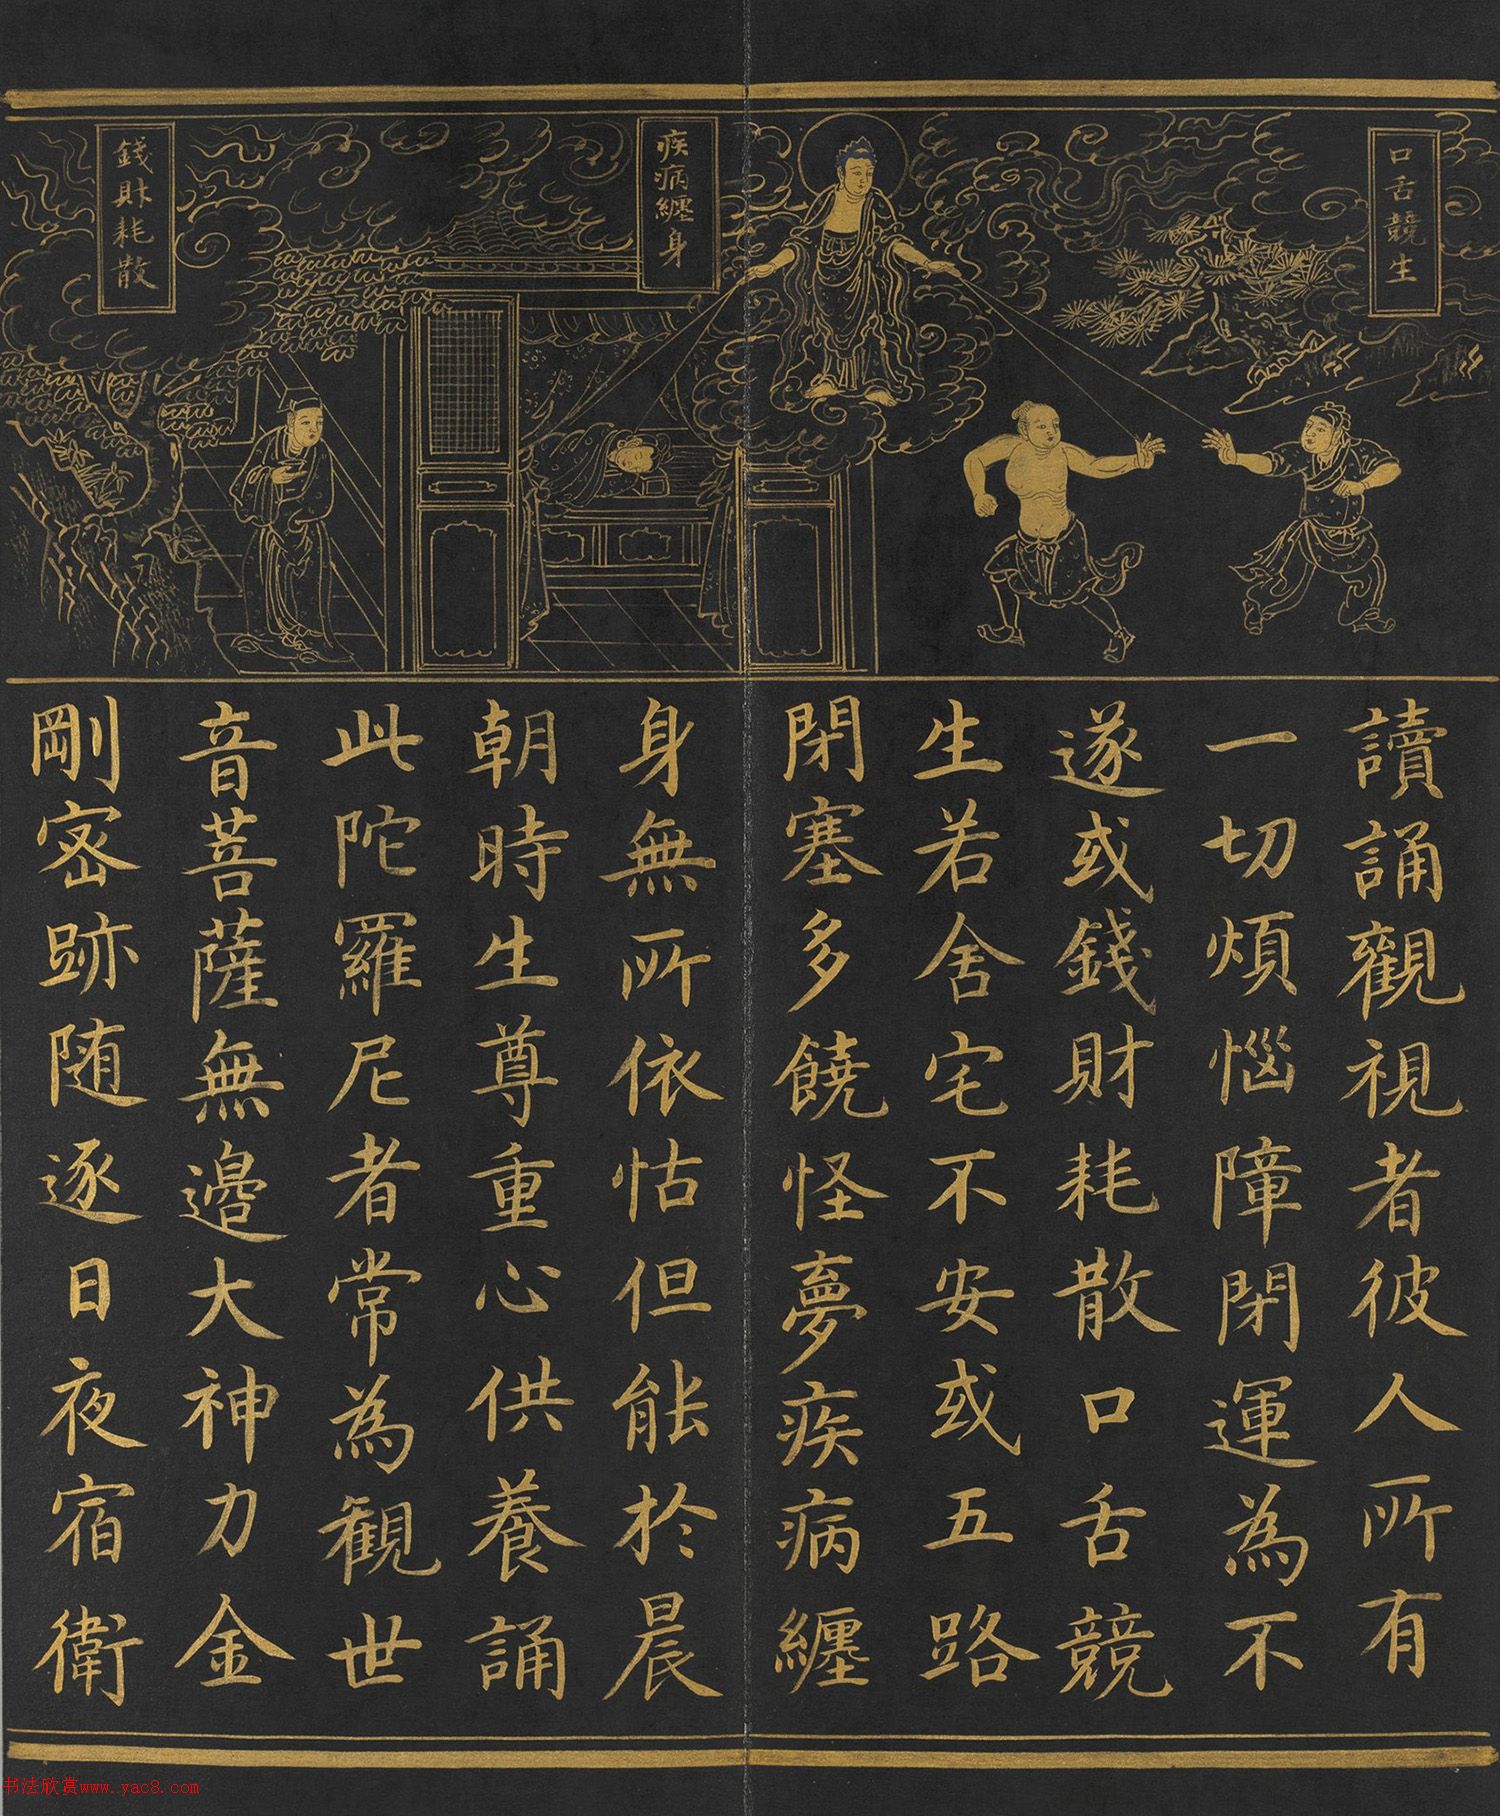 口舌競生
疾病纏身
錢財耗散
讀誦觀視者彼人所有
一切煩惱障閉運為不
遂或錢財耗散口舌競
生若舍宅不安或五路
閉塞多饒怪夢疾病纏
身無所依怙但能於晨
朝時生尊重心供養誦
此陀羅尼者常為觀世
音菩薩無邊大神力金
剛密跡随逐日夜宿衛
书法欣赏www.yac8.com